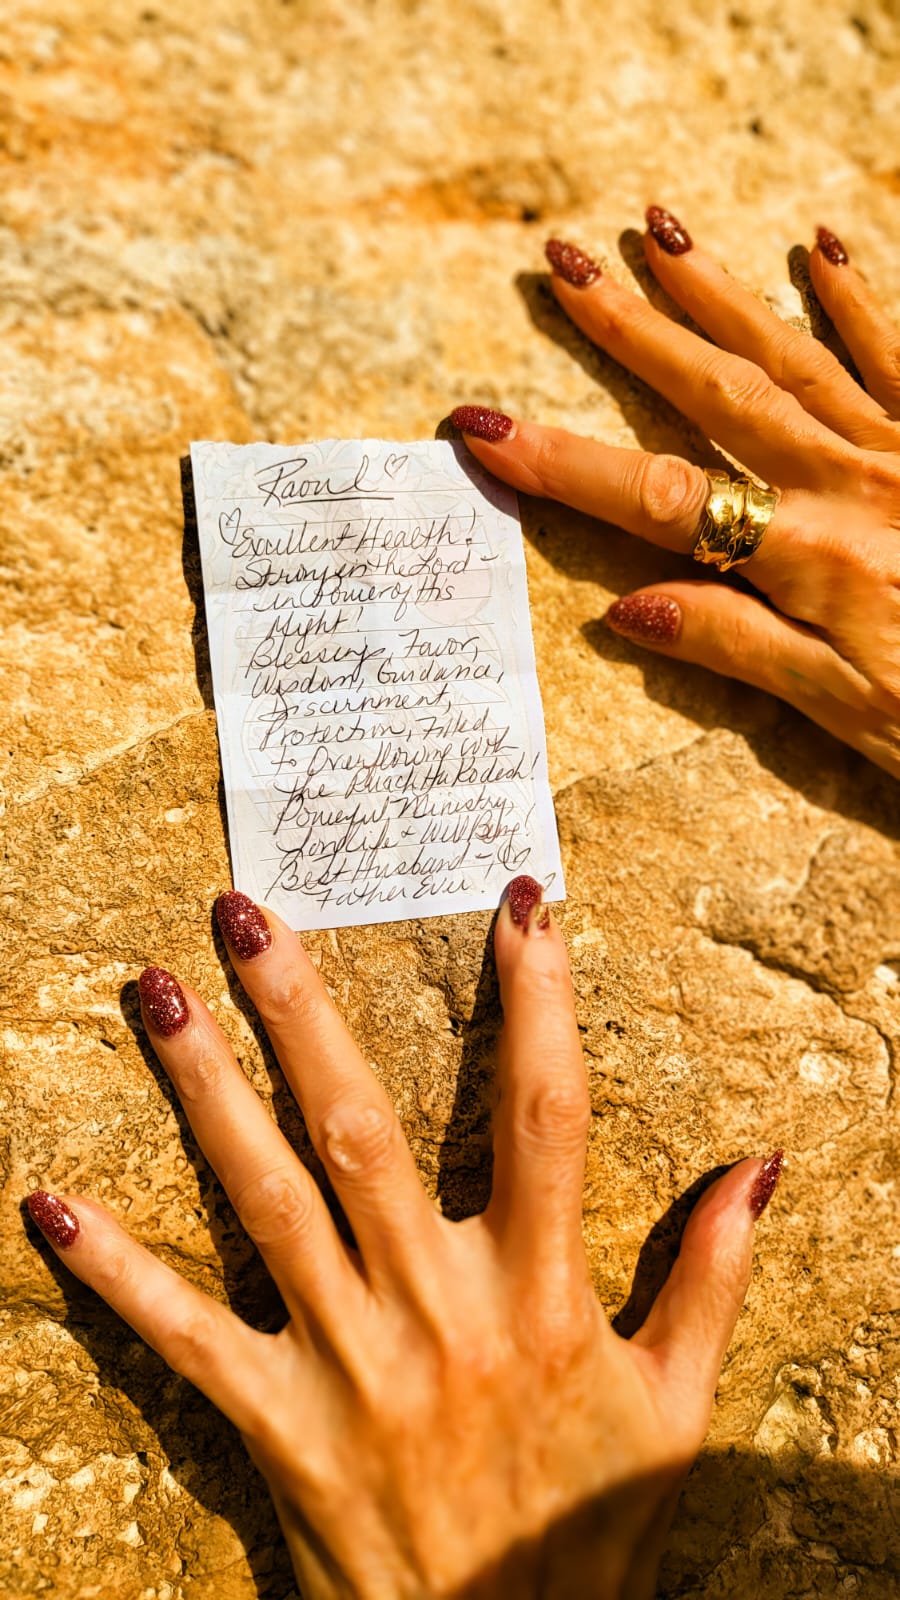 Raoul ♡
♡ Excellent Health!
Strong in the Lord -
in Power of His
Might!
Blessings, Favor,
Wisdom, Guidance,
Discernment,
Protection, Filled
to Overflowing with
the Ruach HaKodesh!
Powerful Ministry,
Long Life + Well Being!
Best Husband - ♡
Father Ever!